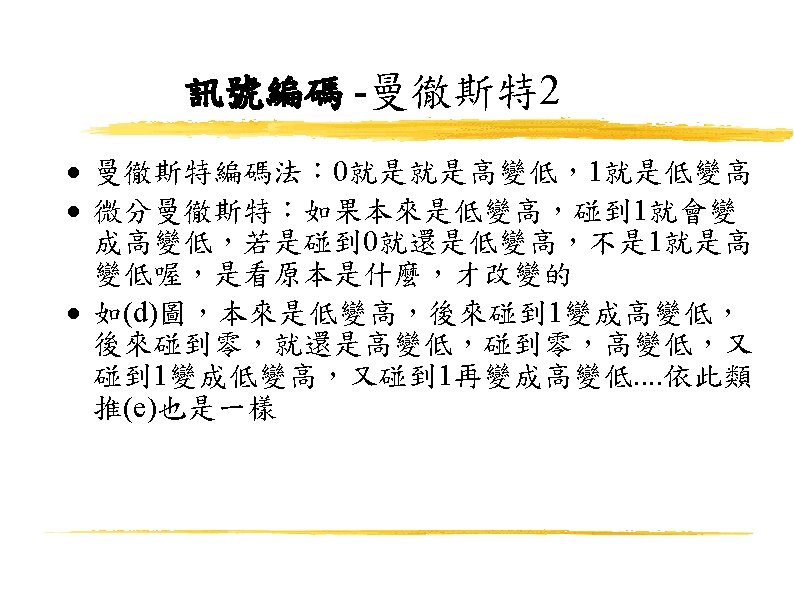 訊號編碼 -曼徹斯特2
• 曼徹斯特編碼法：0就是就是高變低，1就是低變高
• 微分曼徹斯特：如果本來是低變高，碰到1就會變
成高變低，若是碰到0就還是低變高，不是1就是高
變低喔，是看原本是什麼，才改變的
• 如(d)圖，本來是低變高，後來碰到1變成高變低，
後來碰到零，就還是高變低，碰到零，高變低，又
碰到1變成低變高，又碰到1再變成高變低....依此類
推(e)也是一樣